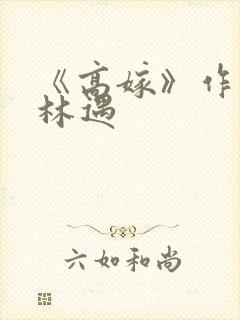 《高嫁》作
林遇
六如和尚